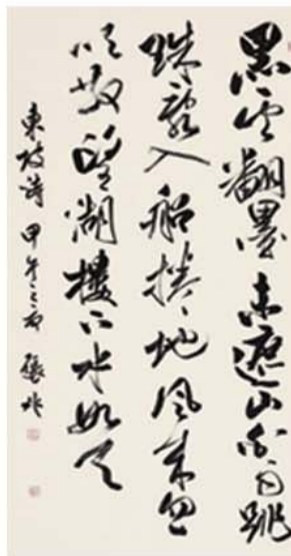 黑雲翻墨未遮山白雨跳
珠亂入船捲地風來忽
吹散望湖樓下水如天
東坡詩 甲午之夏 張